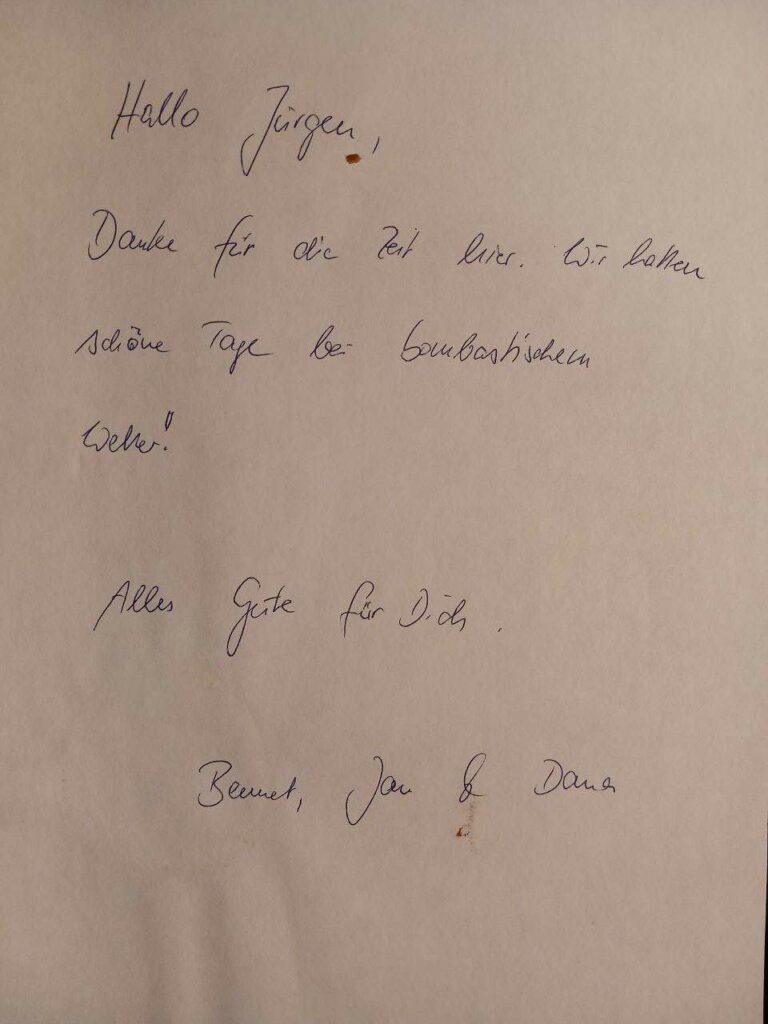 Hallo Jürgen,
Danke für die Zeit hier. Wir hatten
schöne Tage bei bombastischem
Wetter!
Alles Gute für Dich.
Bennet, Jan & Dana